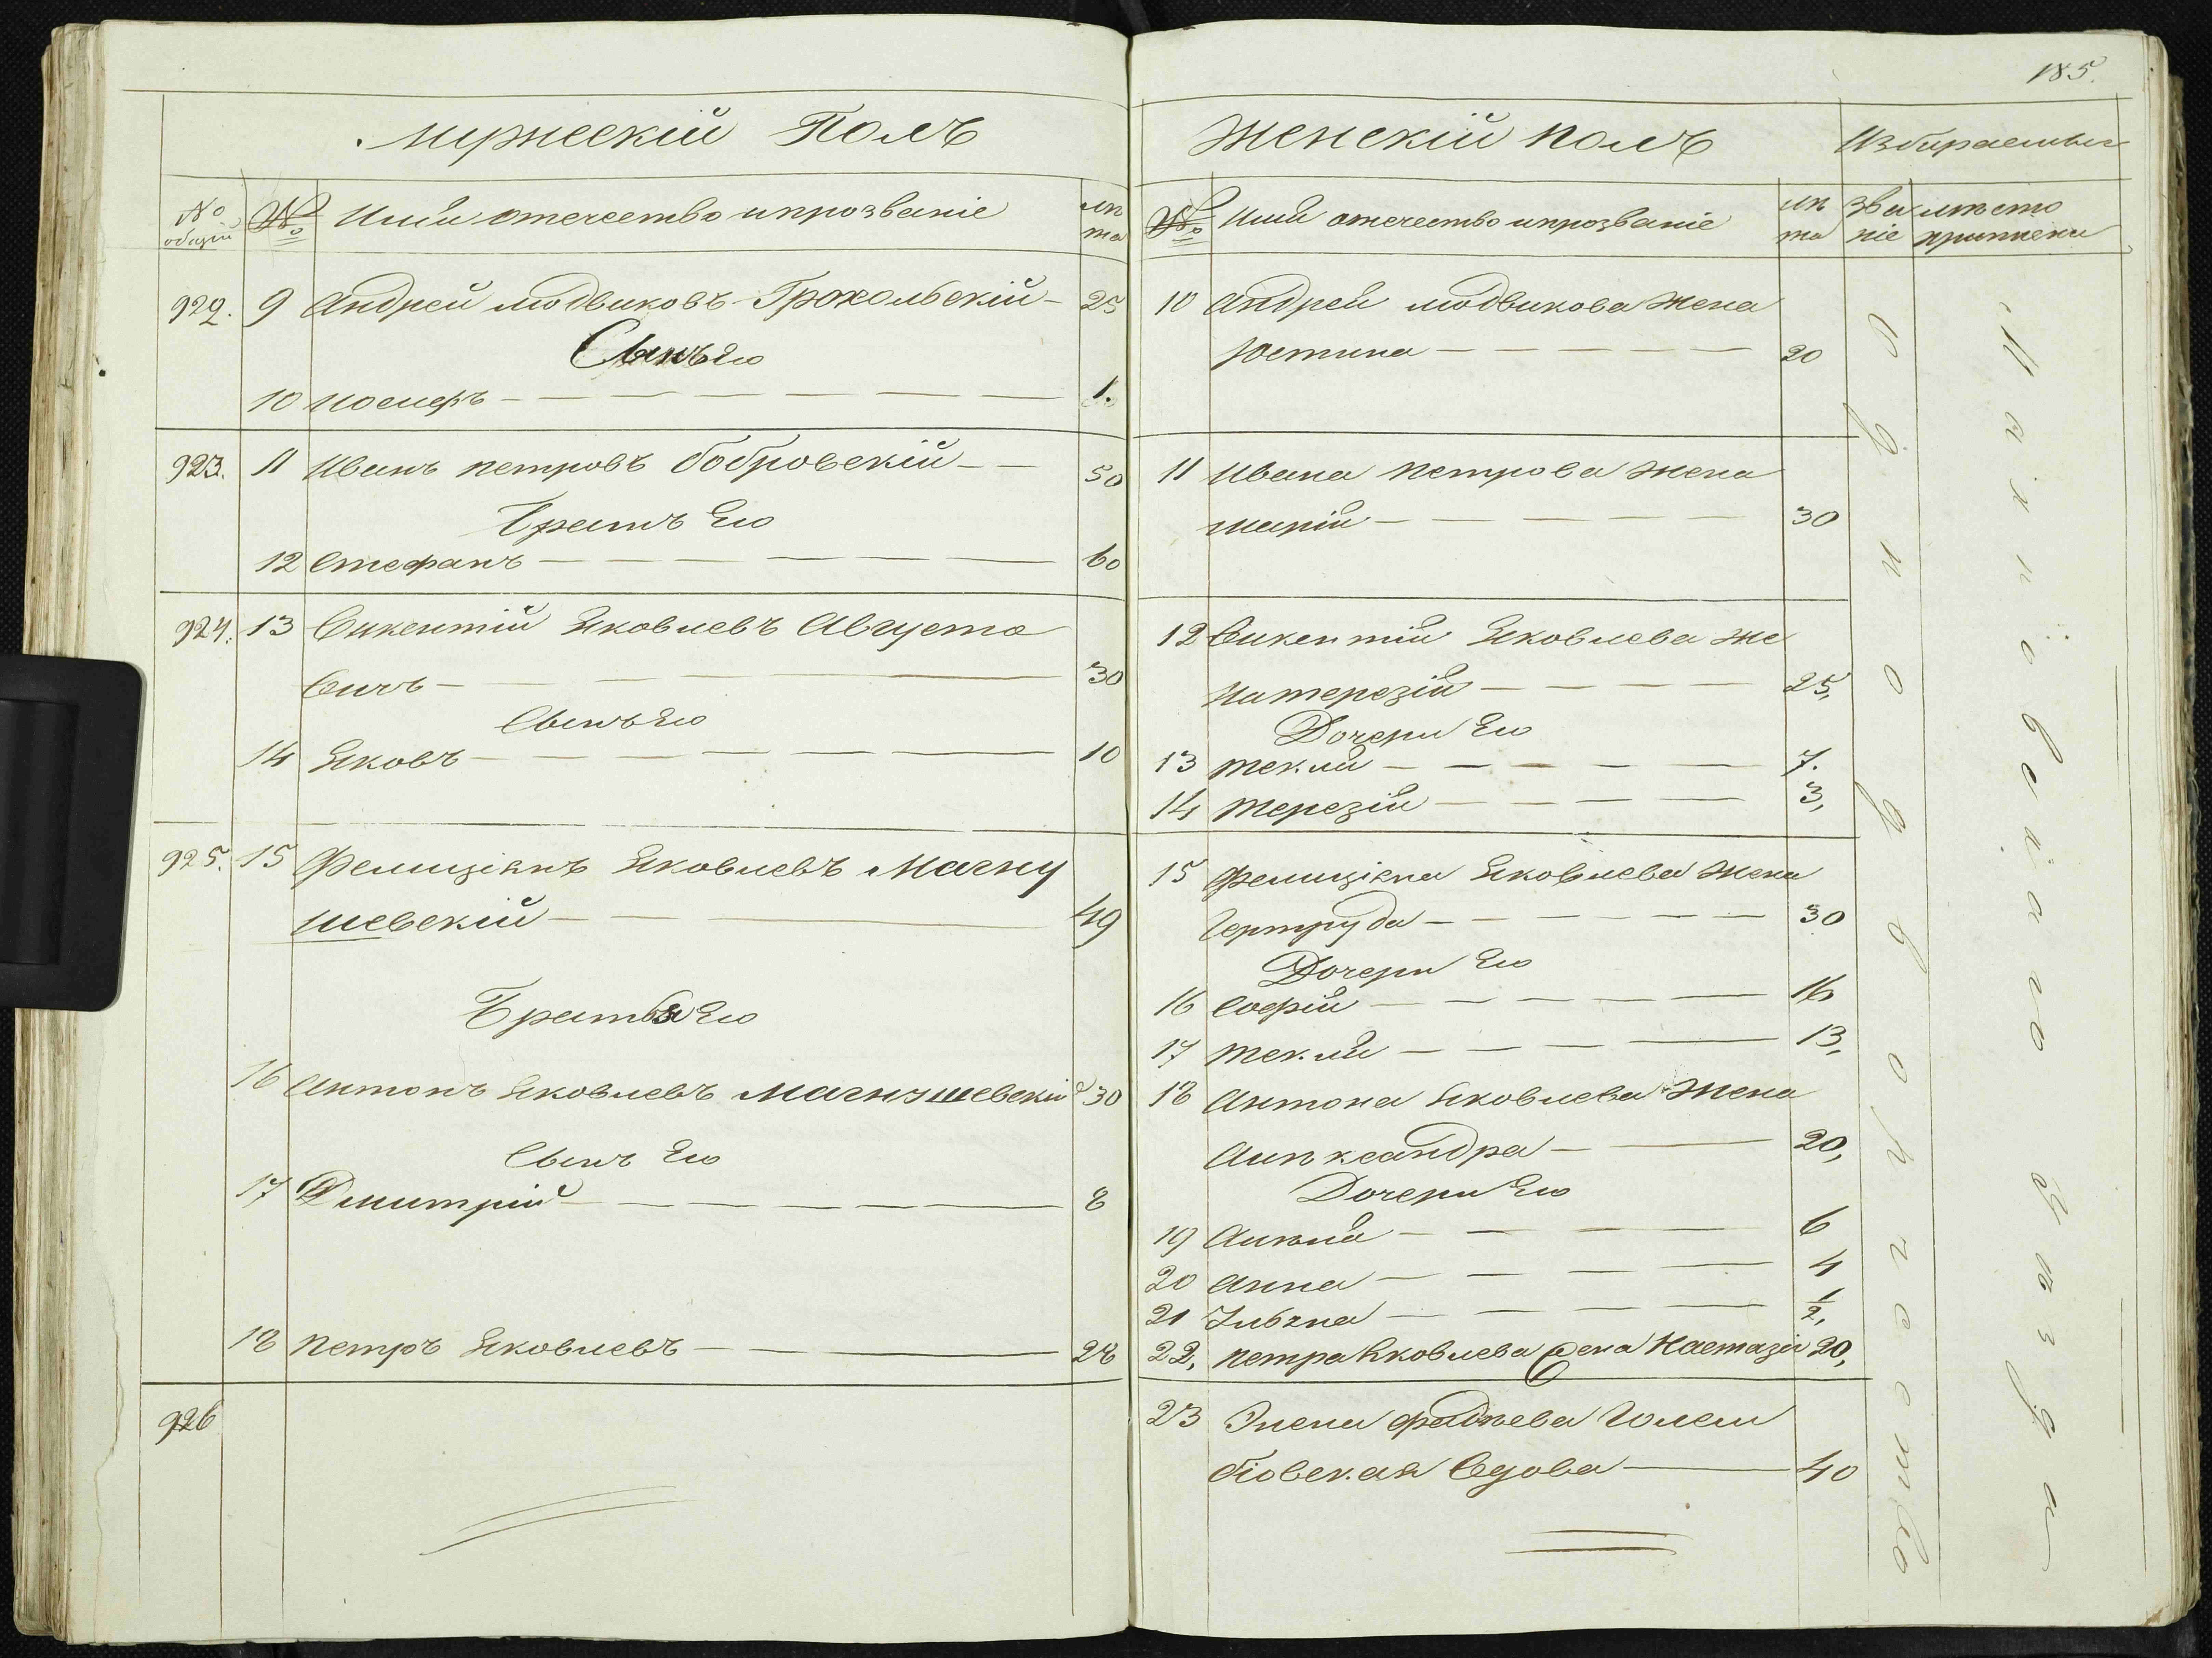 185.
Мужескій Полъ
№ общій
№
Имя отечество и прозваніе
лѣта
922. 9 Андрей людвиковъ Грохольскій — 25
Сынъ Его
10 Иосифъ — 1.
923. 11 Иванъ петровъ бобровскій — 50
Братъ Его
12 Стефанъ — 60
924. 13 Викентій Яковлевъ Августо
вичъ — 30
Сынъ Его
14 Яковъ — 10
925. 15 Фелиціянъ Яковлевъ Магну
шевскій — 49
Братья Его
16 Антонъ Яковлевъ Магнушевскій 30
Сынъ Его
17 Дмитрій — 8
18 петръ Яковлевъ — 28
926
Женскій полъ
Избираемыя
№
Имя отечество и прозваніе
лѣта
званіе
мѣсто приписки
10 Андрея людвикова жена
Юстина — 20
11 Ивана петрова жена
марія — 30
12 Викентія Яковлева же
на терезія — 25,
Дочери Его
13 текля — 7.
14 терезія — 3,
15 фелиціяна Яковлева жена
Гертруда — 30
Дочери Его
16 Софія — 16
17 текля — 13,
18 Антона Яковлева жена
Алѣксандра — 20,
Дочери Его
19 Анѣля — 6
20 Анна — 4
21 Juбzna — 1/2,
22, петра Яковлева Жена Настазія 20,
23 Элена фадѣева
Вдова — 40
однодворчество
уѣзда